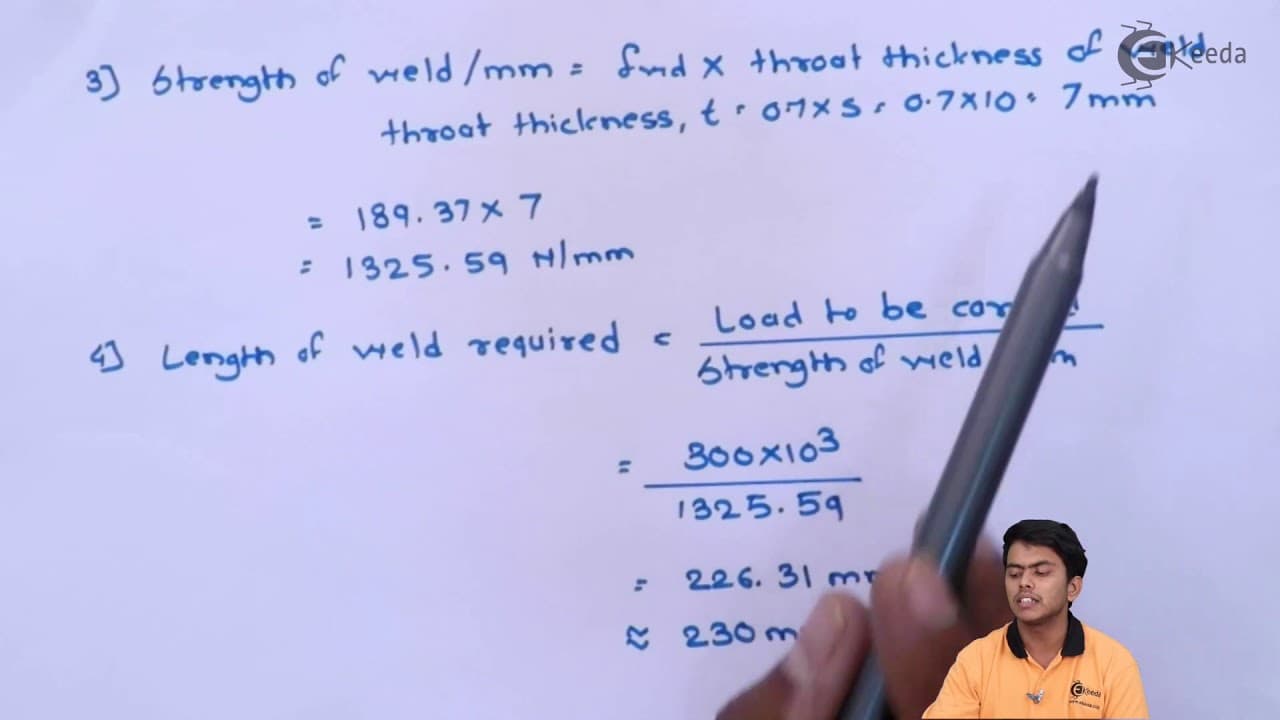 3] Strength of weld/mm = fwd × throat thickness of weld
throat thickness, t = 0.7×S = 0.7×10 = 7mm
= 189.37×7
= 1325.59 N/mm
4] Length of weld required = Load to be
Strength of weld
= 300×10³
1325.59
= 226.31
≈ 230
eKeeda
eKeeda